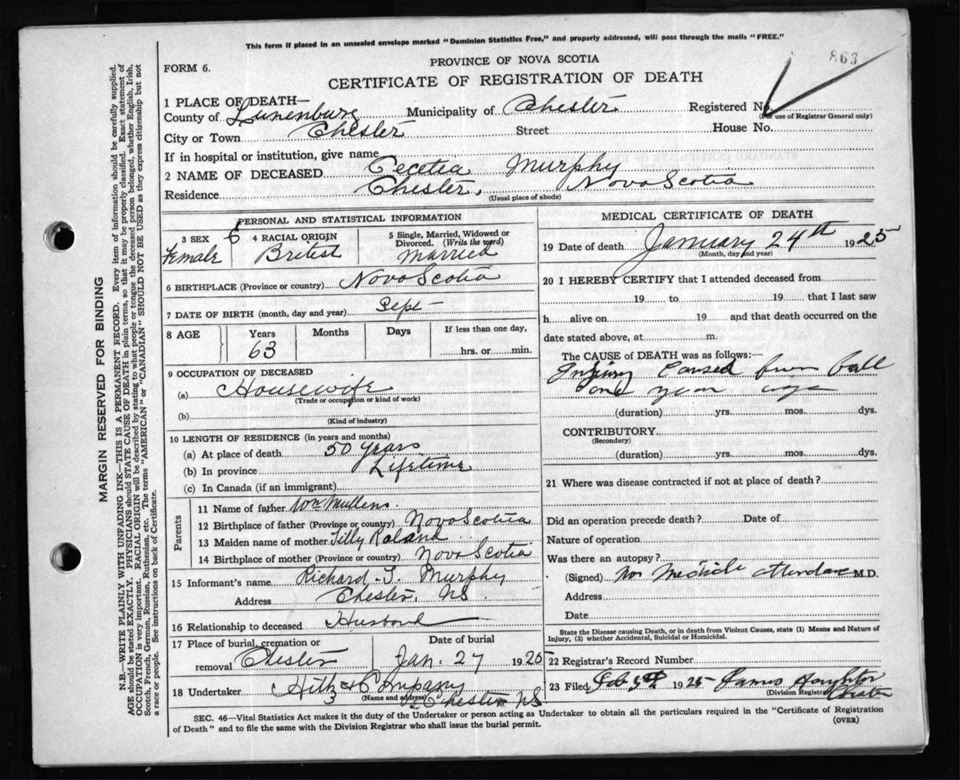 This form if placed in an unsealed envelope marked "Dominion Statistics Free," and properly addressed, will pass through the mails "FREE."
863
PROVINCE OF NOVA SCOTIA
FORM 6.
CERTIFICATE OF REGISTRATION OF DEATH
1 PLACE OF DEATH—
County of Lunenburg Municipality of Chester Registered No.
(For use of Registrar General only)
City or Town Chester Street House No.
If in hospital or institution, give name
2 NAME OF DECEASED Cecetia Murphy
Residence Chester, Nova Scotia
(Usual place of abode)
PERSONAL AND STATISTICAL INFORMATION
3 SEX 6 4 RACIAL ORIGIN 5 Single, Married, Widowed or Divorced. (Write the word)
Female British Married
6 BIRTHPLACE (Province or country) Nova Scotia
7 DATE OF BIRTH (month, day and year) Sept —
8 AGE Years Months Days If less than one day,
63 hrs. or min.
9 OCCUPATION OF DECEASED
(a) Housewife
(Trade or occupation or kind of work)
(b)
(Kind of industry)
10 LENGTH OF RESIDENCE (in years and months)
(a) At place of death 50 years
(b) In province Lifetime
(c) In Canada (if an immigrant)
Parents
11 Name of father Wm Mullens
12 Birthplace of father (Province or country) Nova Scotia
13 Maiden name of mother Tilly Roland
14 Birthplace of mother (Province or country) Nova Scotia
15 Informant's name Richard Murphy
Address Chester, NS.
16 Relationship to deceased Husband
17 Place of burial, cremation or removal Chester
Date of burial Jan. 27 1925
18 Undertaker Hiltz & Company
(Name and address)
Chester NS
MEDICAL CERTIFICATE OF DEATH
19 Date of death January 24th 1925
(Month, day and year)
20 I HEREBY CERTIFY that I attended deceased from
19 to 19 that I last saw
h alive on 19 and that death occurred on the
date stated above, at m.
The CAUSE OF DEATH was as follows:
Injury Caused from fall
one year ago
(duration) yrs. mos. dys.
CONTRIBUTORY
(Secondary)
(duration) yrs. mos. dys.
21 Where was disease contracted if not at place of death?
Did an operation precede death? Date of
Nature of operation
Was there an autopsy?
(Signed) No Medicle attendance M.D.
Address
Date
State the Disease causing Death, or in death from Violent Causes, state (1) Means and Nature of Injury, (2) whether Accidental, Suicidal or Homicidal.
22 Registrar's Record Number
23 Filed Feb 3rd 1925 James Houghton
(Division Registrar)
Chester
SEC. 46—Vital Statistics Act makes it the duty of the Undertaker or person acting as Undertaker to obtain all the particulars required in the "Certificate of Registration
of Death" and to file the same with the Division Registrar who shall issue the burial permit.
(OVER)
MARGIN RESERVED FOR BINDING
N.B.—WRITE PLAINLY WITH UNFADING INK—THIS IS A PERMANENT RECORD. Every item of information should be carefully supplied.
AGE should be stated EXACTLY. PHYSICIANS should STATE CAUSE OF DEATH in plain terms, so that it may be properly classified. Exact statement of
OCCUPATION is very important. RACIAL ORIGIN will be described by stating to what people or tongue the deceased person belonged, whether English, Irish,
Scotch, French, German, Russian, Ruthenian, etc. The terms "AMERICAN" or "CANADIAN" SHOULD NOT BE USED as they express citizenship but not
a race or people. See instructions on back of Certificate.